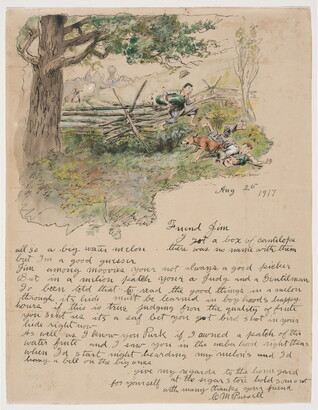 Aug 26 1917
Friend Jim
I got a box of cantilope
allso a big water melon there was no name with them
but I'm a good guesser
Jim among moovies your not always a good picker
But in a melon patch your a Judg and a Gentilman
Iv been told that to read the good things in a melon
through its hide must be learned in boy hoods happy
hour if this is true judging from the quality of frute
you sent us its a saf bet you got bird shot in your
hide right now
As well as I know you Park if I owned a patch of this
water frute and I saw you in the nabor hood right then
when I'd start night hearding my melons and I'd
hang a bell on the big ones
give my regards to the home gard
for yourself at the sugar store
with many thanks your friend
CM Russell